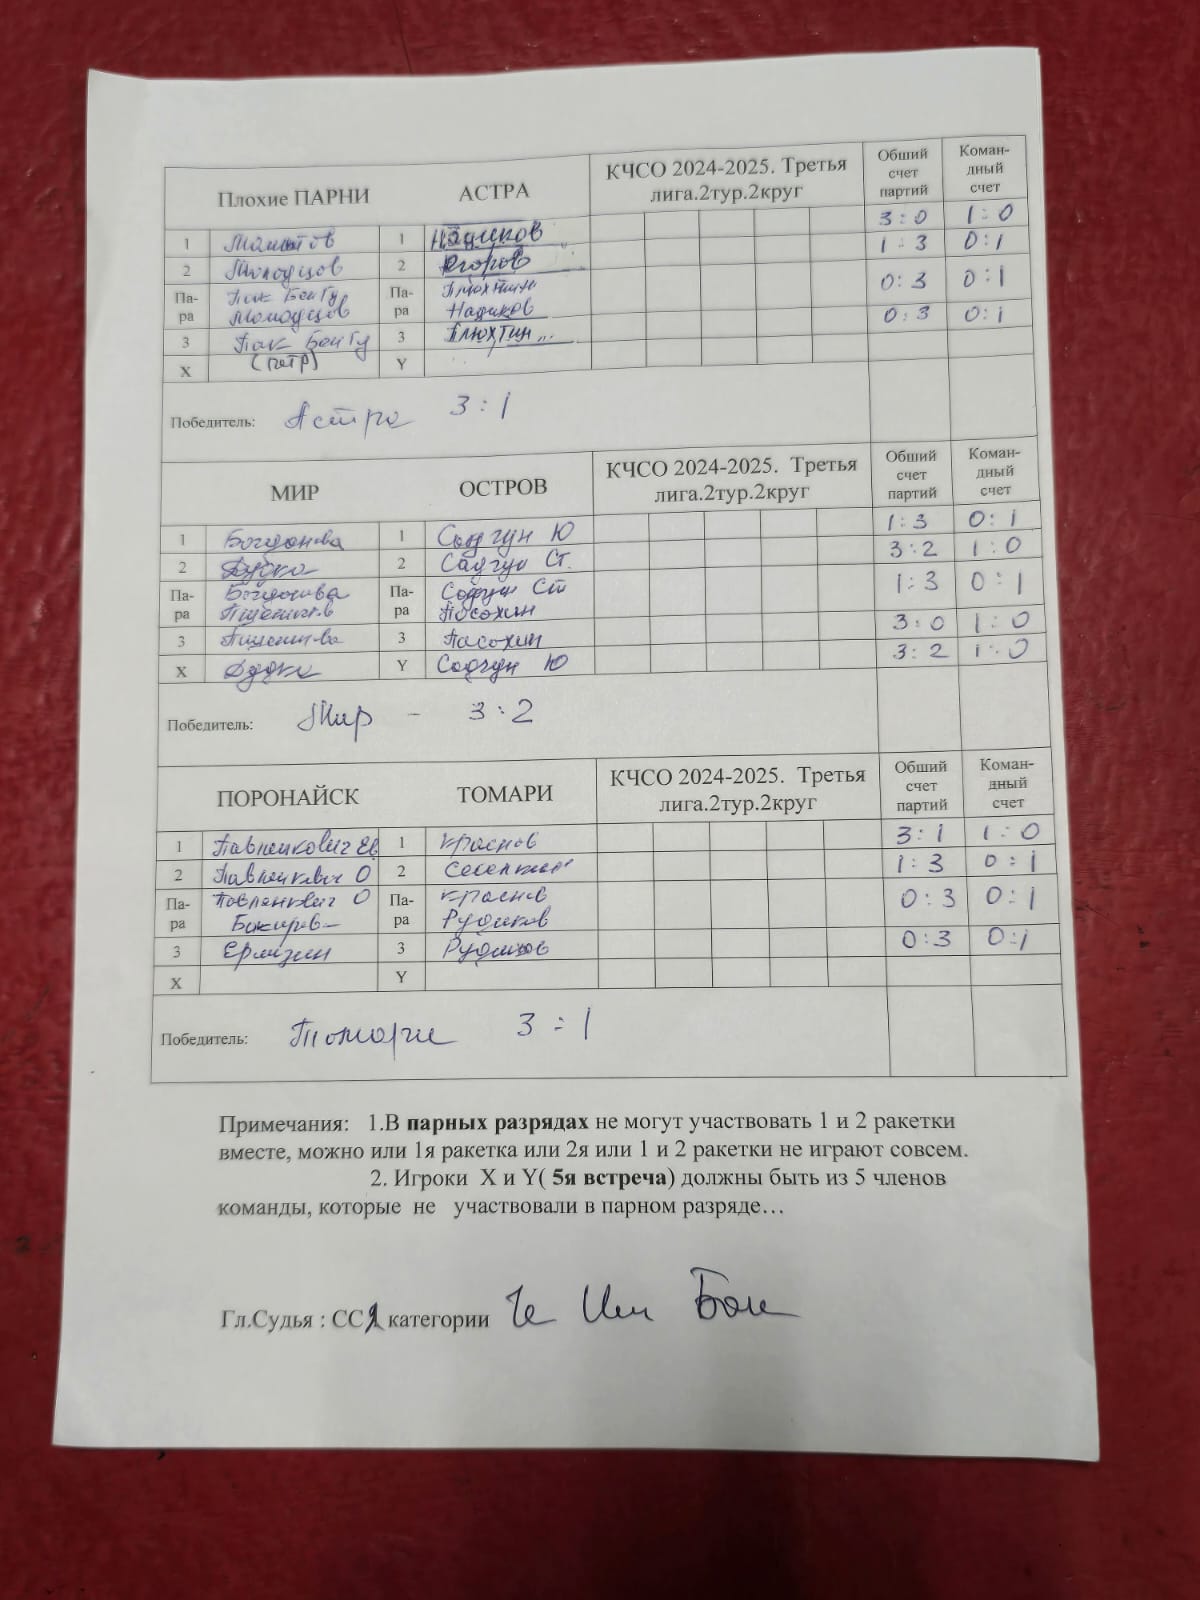 Плохие ПАРНИ АСТРА КЧСО 2024-2025. Третья лига.2тур.2круг Обший счет партий Коман-дный счет
3:0 1:0
1 Мамотов 1 Надиков 1:3 0:1
2 Молодцов 2 Егоров
Па-ра Пак Бон Гу Па-ра Плюхтин 0:3 0:1
Молодцов Надиков
0:3 0:1
3 Пак Бон Гу 3 Плюхтин
X (петр) Y
Победитель: Астра 3:1
МИР ОСТРОВ КЧСО 2024-2025. Третья лига.2тур.2круг Обший счет партий Коман-дный счет
1 Богданова 1 Садгун Ю 1:3 0:1
2 Дудка 2 Садгун Ст. 3:2 1:0
Па-ра Богданова Па-ра Садгун Ст 1:3 0:1
Посохин
3 3 Пасохин 3:0 1:0
X Дудка Y Садгун Ю 3:2 1:0
Победитель: Мир - 3:2
ПОРОНАЙСК ТОМАРИ КЧСО 2024-2025. Третья лига.2тур.2круг Обший счет партий Коман-дный счет
1 Павленкович Ев 1 Краснов 3:1 1:0
2 Павленкович О 2 1:3 0:1
Па-ра Павленкович О Па-ра Краснов 0:3 0:1
Рудиков
3 Ермизин 3 Рудиков 0:3 0:1
X Y
Победитель: Томари 3:1
Примечания: 1.В парных разрядах не могут участвовать 1 и 2 ракетки
вместе, можно или 1я ракетка или 2я или 1 и 2 ракетки не играют совсем.
2. Игроки X и Y( 5я встреча) должны быть из 5 членов
команды, которые не участвовали в парном разряде…
Гл.Судья : СС1 категории Че Ин Бок